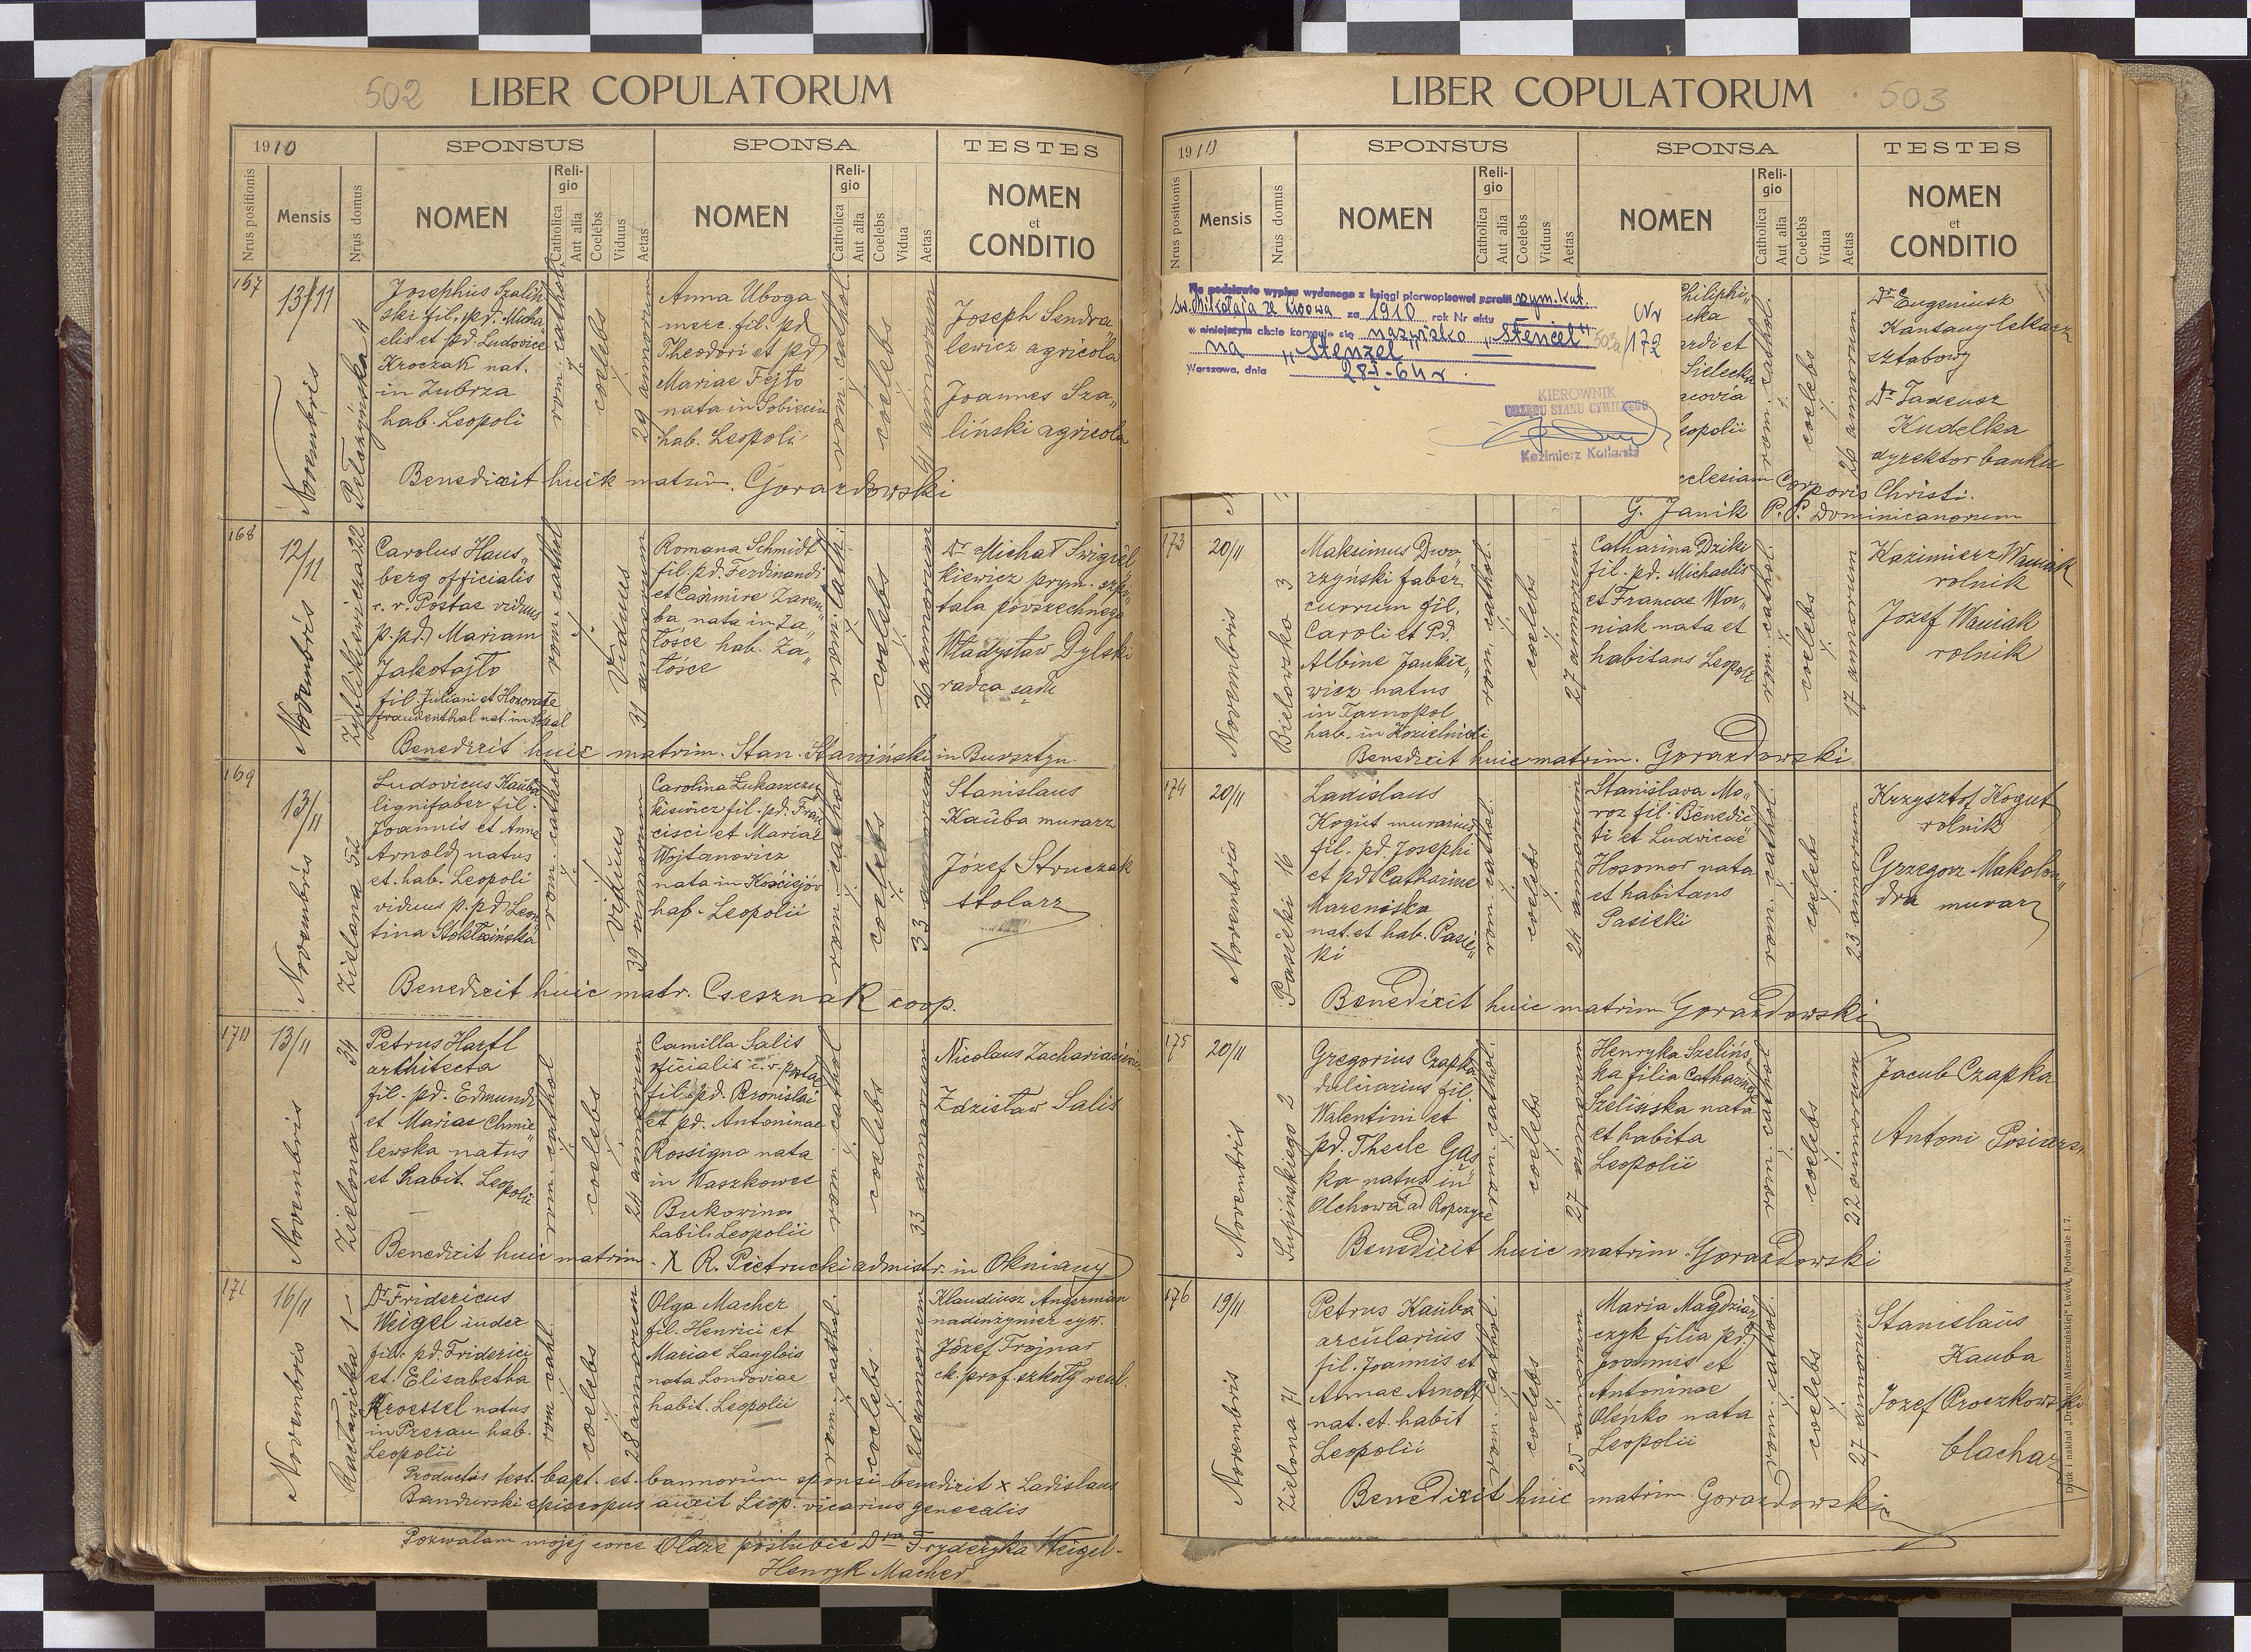 502 LIBER COPULATORUM
1910 SPONSUS SPONSA TESTES
Nrus positionis Mensis Nrus domus NOMEN Religio Catholica Aut alia Coelebs Viduus Aetas NOMEN Religio Catholica Aut alia Coelebs Vidua Aetas NOMEN et CONDITIO
167
13/11
Novembris
Josephus Szaliń„
ski fil. pd. Micha„
elis et pd. Ludovice
Kroczak nat.
in Zubrza
hab. Leopoli
rom. cathol.
coelebs
29 annorum
Anna Uboga
merc. fil. pd
Theodori et pd
Mariae Fejto
nata in
hab. Leopoli
rom. cathol.
coelebs
41 annorum
Joseph Sendra„
lewicz agricola
Joannes Sza„
liński agricola
Benedixit huic matrim. Gorazdowski
168
12/11
Novembris
Zyblikiewicza 22
Carolus Haus„
berg officialis
c. r. Postae viduus
p. pd. Mariam
Jakotajto
fil. Juliani et Honorate
nat. in Sokal
rom. cathol
Viduus
31 annorum
Romana Schmidt
fil. pd. Ferdinandi
et Casimire Zarem„
ba nata in Za„
łośce hab. Za„
łośce
rom. cath.
coelebs
26 annorum
Dr Michał Swigiel
kiewicz prym. szpi„
tala powszechnego
Władysław Dylski
radca sadu
Benedixit huic matrim. Stan. Sławiński in Bursztyn
169
13/11
Novembris
Zielona 52
Ludovicus Kauba
lignifaber fil.
Joannis et Anne
Arnold natus
et. hab. Leopoli
viduus p. pd Leon
tina
rom. cathol
Viduus
39 annorum
Carolina Łukasze
kiewicz fil. pd. Fran
cisci et Mariae
Wojtanowicz
nata in Kościejów
hab. Leopolii
rom. cathol
coelebs
33 annorum
Stanislaus
Kauba murarz
Józef Struczak
stolarz
Benedixit huic matr. Csesznak coop.
170
13/11
Novembris
Zielona 34
Petrus Hartl
architecta
fil. pd. Edmundi
et Mariae Chmie„
lewska natus
et habit. Leopolii
rom. cathol
coelebs
24 annorum
Camilla Salis
oficialis c. r. postae
fil. pd. Bronislai
et pd. Antoninae
Rossigno nata
in Waszkowce
Bukowina
habit. Leopolii
rom. cathol
coelebs
33 annorum
Nicolaus Zachariasiewicz
Zdzisław Salis
Benedixit huic matrim. X R. Pietrucki admistr. in Okniany
171
16/11
Novembris
Racławicka 1
Dr Fridericus
Weigel iudex
fil. pd. Friderici
et Elisabetha
Kroessel natus
in Prerau hab.
Leopolii
rom cath.
coelebs
28 annorum
Olga Macher
fil. Henrici et
Mariae Langlois
nata Londoviae
habit. Leopolii
rom. cathol.
coelebs
20 annorum
Klaudiusz Angerman
nadinzynier cyw.
Józef Trojnar
ck. prof. szkoły real.
Productis test. bapt. et. bannorum sponsi benedixit x Ladislaus
Bandurski episcopus auxil Leop. vicarius generalis
Pozwalam mojej corce Oldze poślubić Dra Fryderyka Weigel
Henryk Macher
LIBER COPULATORUM 503
1910 SPONSUS SPONSA TESTES
Nrus positionis Mensis Nrus domus NOMEN Religio Catholica Aut alia Coelebs Viduus Aetas NOMEN Religio Catholica Aut alia Coelebs Vidua Aetas NOMEN et CONDITIO
Na podstawie wypisu wydanego z księgi pierwopisowej parafii rzym. kat.
św. Mikołaja ze Lwowa za 1910 rok Nr aktu Nr
w niniejszym akcie koryguje się nazwisko „Stencel" 172
na „Stenzel"
Warszawa, dnia 28-I-64 r.
KIEROWNIK
URZĘDU STANU CYWILNEGO
Kazimierz
rom. cathol.
coelebs
26 annorum
Dr Eugeniusz
lekarz
sztabowy
Dr Tadeusz
Kudelka
dyrektor banku
ecclesiam Corporis Christi.
G. Janik P. P. Dominicanorum
173
20/11
Novembris
Bielowzko 3
Maksimus Dwo„
rzyński faber
currum fil.
Caroli et Pd.
Albine Jankie„
wicz natus
in Tarnopol
hab. in Kozielniki
rom. cathol.
coelebs
27 annorum
Catharina Dziki
fil. pd. Michaelis
et Francae Wa„
niak nata et
habitans Leopoli
rom. cathol.
coelebs
17 annorum
Kazimierz Waniak
rolnik
Jozef Waniak
rolnik
Benedixit huic matrim. Gorazdowski
174
20/11
Novembris
Pasieki 16
Ladislaus
Kogut murarius
fil. pd. Josephi
et pd. Catharine
Mareniska
nat. et hab. Pasie„
ki
rom. cathol.
coelebs
24 annorum
Stanislava Mo„
roz fil. Benedic
ti et Ludvicae
Hosomor nata
et habitans
Pasieki
rom. cathol.
coelebs
23 annorum
Krzysztof Kogut
rolnik
Grzegorz Makolon„
dra murarz
Benedixit huic matrim. Gorazdowski
175
20/11
Novembris
Supińskiego 2
Gregorius Czapka
dulciarius fil.
Walentini et
pd. Thecle Gąs„
ka natus in
Olchowa ad Ropczyce
rom. cathol.
coelebs
27 annorum
Henryka Szelińs„
ka filia Catharinae
Szelińska nata
et habita
Leopolii
rom. cathol.
coelebs
22 annorum
Jacub Czapka
Antoni
Benedixit huic matrim. Gorazdowski
176
19/11
Novembris
Zielona 71
Petrus Kauba
arcularius
fil. Joannis et
Annae Arnolf
nat. et. habit
Leopolii
rom. cathol.
coelebs
25 annorum
Maria Magdziar„
czyk filia pd.
Joannis et
Antoninae
Oleńko nata
Leopolii
rom. cathol.
coelebs
27 annorum
Stanislaus
Kauba
Jozef Proczkowski
blacharz
Benedixit huic matrim. Gorazdowski
Druk i nakład „Drukarni Mieszczańskiej" Lwów, Podwale l. 7.